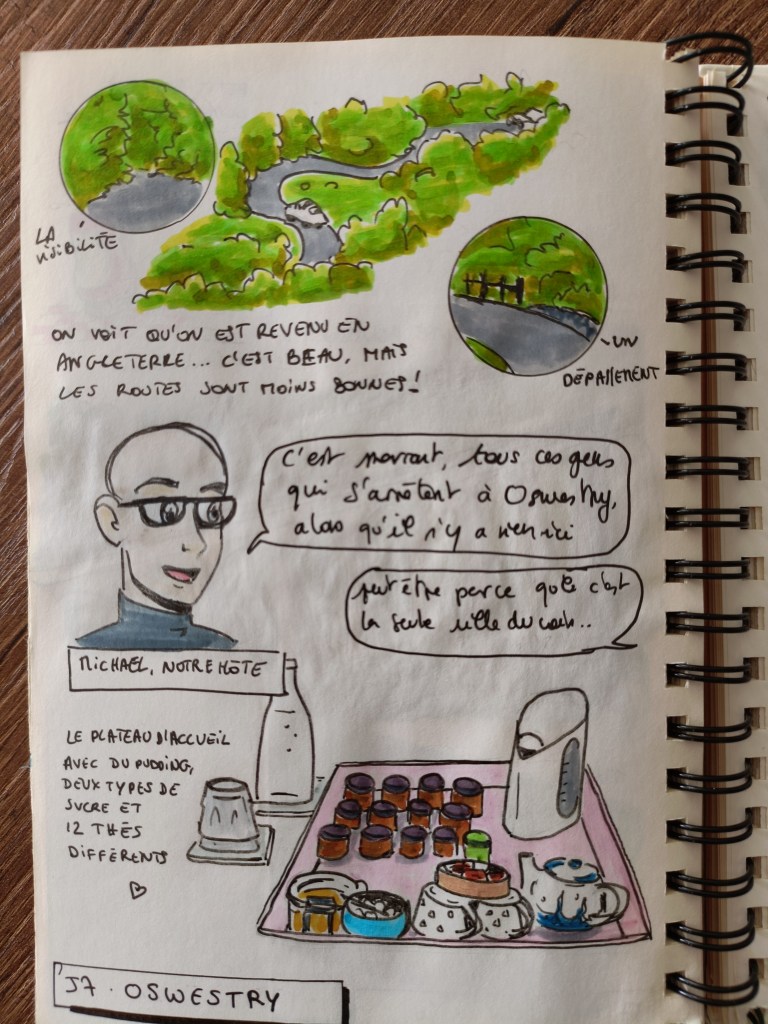 LA
VISIBILITÉ
UN
DÉPASSEMENT
ON VOIT QU'ON EST REVENU EN
ANGLETERRE... C'EST BEAU, MAIS
LES ROUTES SONT MOINS BONNES!
C'est marrant, tous ces gens
qui s'arrêtent à Oswestry,
alors qu'il n'y a rien ici
peut être parce que c'est
la seule ville du coin..
MICHAEL, NOTRE HÔTE
LE PLATEAU D'ACCUEIL
AVEC DU PUDDING,
DEUX TYPES DE
SUCRE ET
12 THÉS
DIFFÉRENTS
J7 · OSWESTRY